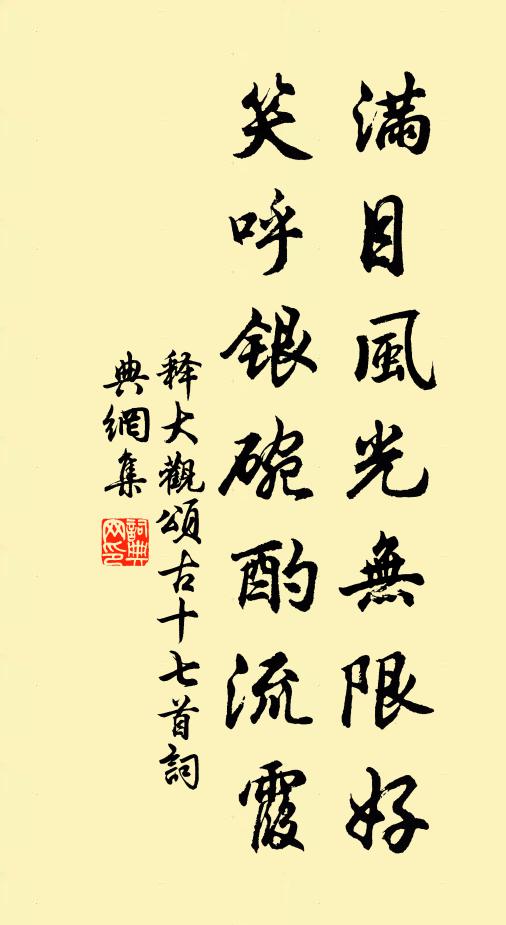 滿目風光無限好
笑呼銀碗酌流霞
釋大觀頌古十七首詞
典網集
詞典
网印